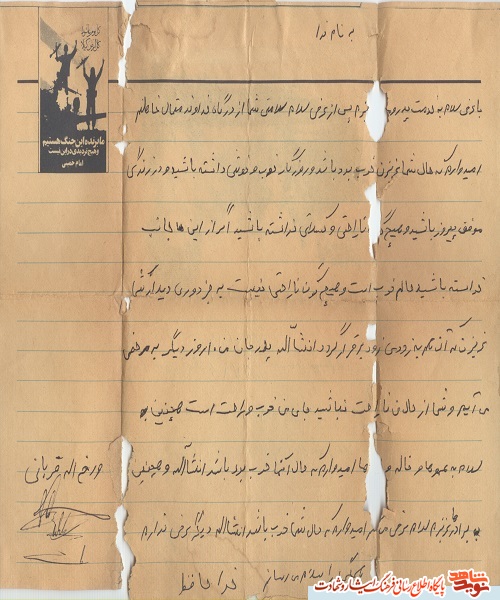 به نام خدا
کاروان کربلا
ما برنده این جنگ هستیم
و هیچ تردیدی در این نیست
امام خمینی
با عرض سلام به خدمت پدر و پس از عرض سلام سلامتی شما از درگاه خداوند متعال خواهانم
امیدوارم که حال شما عزیزان خوب بوده باشد و روزگار خوب و خوشی داشته باشید و در زندگی
موفق پیروز باشید و هیچ گونه ناراحتی و کسالتی نداشته باشید اگر از این جانب
خواسته باشید حالم خوب است و هیچ گونه ناراحتی نیست به جز دوری دیدار شما
عزیزان که آن هم به زودی زود برقرار گردد انشاالله پدر جان من امروز دیگر به مرخصی
می آیم و شما از حال من ناراحت نباشید جای من خوب و راحت است همچنین به
سلام به عموها و خاله امیدوارم که حال آنها خوب بوده باشد انشاالله و همچنین
به برادر عزیزم سلام عرض می کنم امیدوارم که حال شما خوب باشد انشاالله دیگر عرضی ندارم
خدا حافظ
قربانی
نوید شاهد
پایگاه اطلاع رسانی فرهنگ ایثار و شهادت